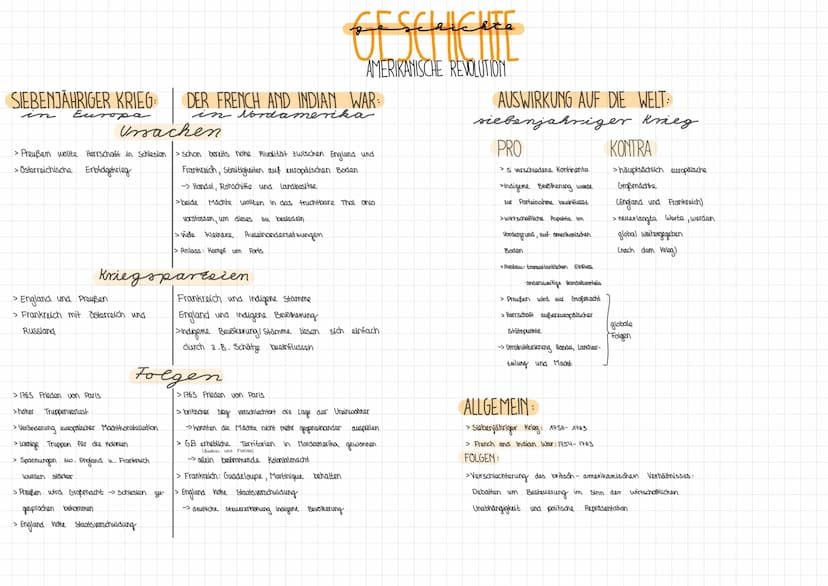 geschichte
GESCHICHTE
AMERIKANISCHE REVOLUTION
SIEBENJÄHRIGER KRIEG:
in Europa
DER FRENCH AND INDIAN WAR:
in Nordamerika
Ursachen
> Preußen wollte Herrschaft in Schlesien
> Österreichische Erbfolgekrieg
> schon bereits hohe Rivalität zwischen England und
Frankreich, Streitigkeiten auf europäischen Boden
-> Handel, Rohstoffe und Landbesitze
> beide Mächte wollten in das fruchtbare Thal Ohio
vorstossen, um dieses zu besiedeln
> viele kleinere Auseinandersetzungen
> Anlass: Kampf um Forts
Kriegsparteien
> England und Preußen
> Frankreich mit Österreich und
Russland
Frankreich und indigene Stämme
England und indigene Bevölkerung
> Indigene Bevölkerung/Stämme liesen sich einfach
durch z.B. Schätze beeinflussen
Folgen
> 1763 Frieden von Paris
> hoher Truppenverlust
> Veränderung europäischer Machtkonstellation
> wenige Truppen für die Kolonien
> Spannungen zw. England u. Frankreich
wurden stärker
> Preußen wird Großmacht -> Schlesien zu-
gesprochen bekommen
> England hohe Staatsverschuldung
> 1763 Frieden von Paris
> britischer Sieg verschlechtert die Lage der Ureinwohner
-> konnten die Mächte nicht mehr gegeneinander ausspielen
> GB erhebliche Territorien in Nordamerika gewonnen
-> allein bestimmende Kolonialmacht
> Frankreich: Guadeloupe, Martinique behalten
> England hohe Staatsverschuldung
-> deutliche Steuererhöhung indigene Bevölkerung
AUSWIRKUNG AUF DIE WELT:
siebenjähriger Krieg
PRO
> 5 verschiedene Kontinente
> Indigene Bevölkerung wurde
zur Parteinahme beeinflusst
> wirtschaftliche Aspekte im
Vordergrund, auf amerikanischen
Boden
> Preußen wird zur Großmacht
> Herrschaft außereuropäischer
Stützpunkte
-> Umstrukturierung Handel, Länder-
teilung und Macht
globale
Folgen
KONTRA
> hauptsächlich europäische
Großmächte
(England und Frankreich)
> neuerlangte Werte, werden
global weitergegeben
(nach dem Krieg)
ALLGEMEIN:
> Siebenjähriger Krieg: 1756-1763
> French and Indian War: 1754-1763
FOLGEN:
> Verschlechterung des britisch-amerikanischen Verhältnisses:
Debatten um Besteuerung im Sinn der wirtschaftlichen
Unabhängigkeit und politische Repräsentation